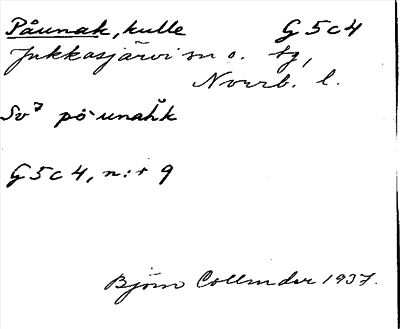 Påunak, kulle G 5 c 4
Jukkasjärvi sn o. tg,
Norrb. l.
Sv⁷ på-unaȟk
G 5 c 4, n:r 9
Björn Collinder 1937.